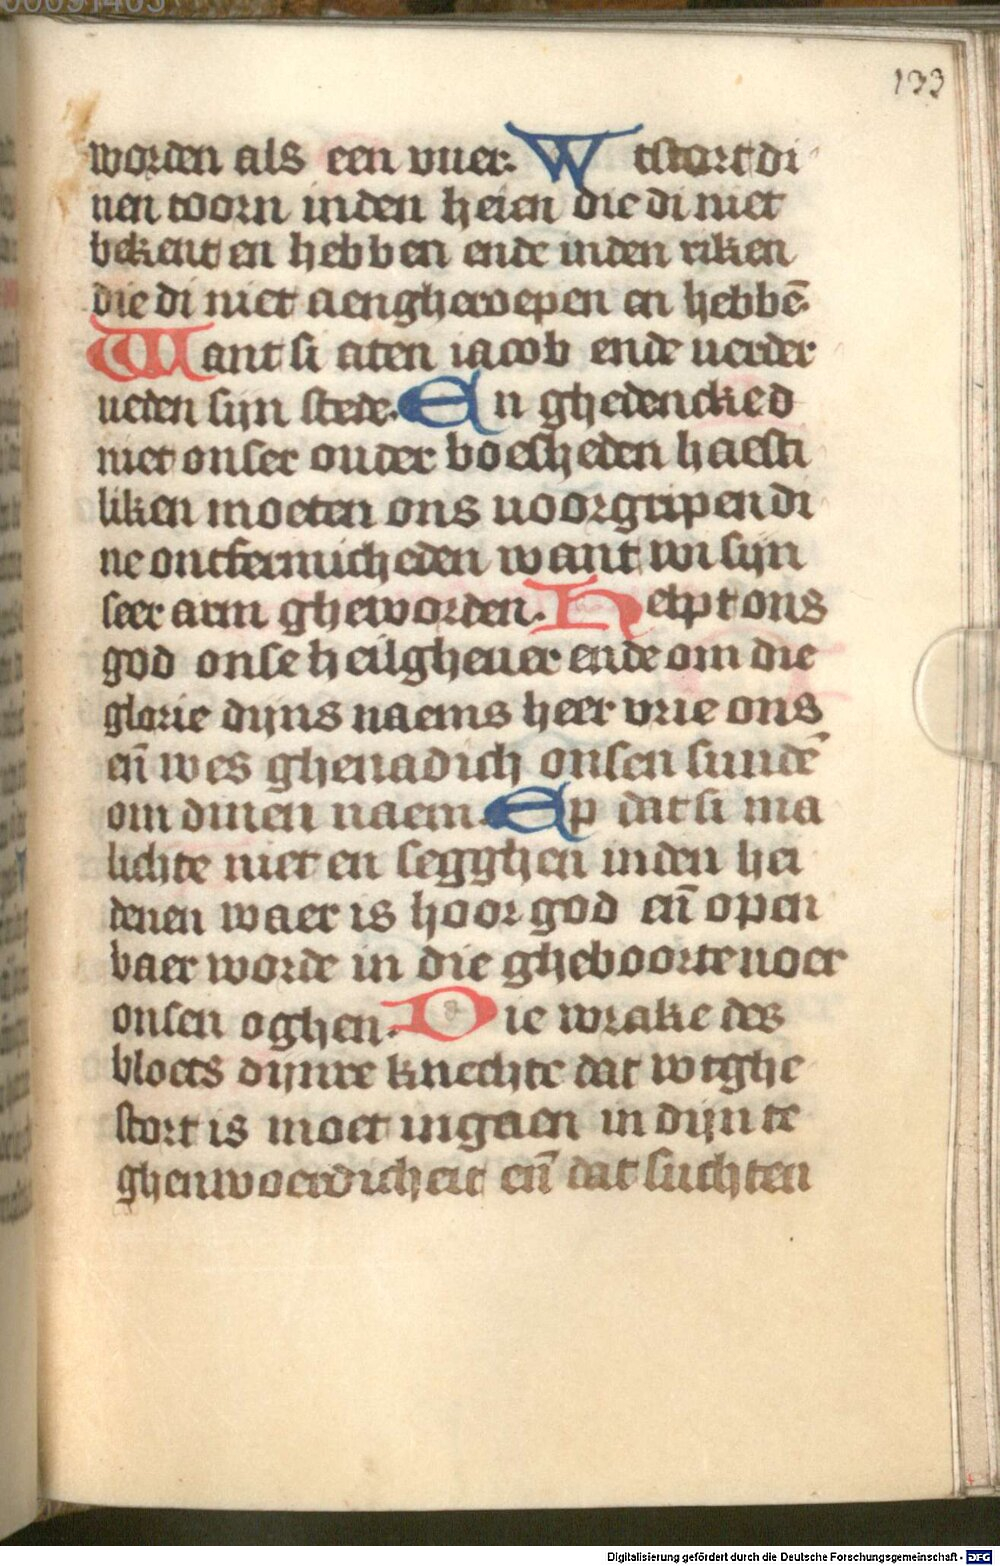 133
worden als een vuer. W tstort di
nen toorn inden heien die di niet
bekent en hebben ende inden riken
die di niet aengheroepen en hebbē
Want si aten iacob ende verder
ueden sijn stede. En ghedencked
niet onser ouder boesheden haesti
liken moeten ons uoorgripen di
ne ontfermicheden want wi sijn
seer arm gheworden. Helpt ons
god onse heilgheuer ende om die
glorie dijns naems heer vrie ons
eñ wes ghenadich onsen sundē
om dinen naem. Ep dat si ma
lichte niet en segghen inden hei
denen waer is hoor god eñ open
baer worde in die gheboorte uoer
onsen oghen. Die wrake des
bloets dijnre knechte dat wtghe
stort is moet ingaen in dijn te
ghenwoerdicheit eñ dat suchten
Digitalisierung gefördert durch die Deutsche Forschungsgemeinschaft - DFG